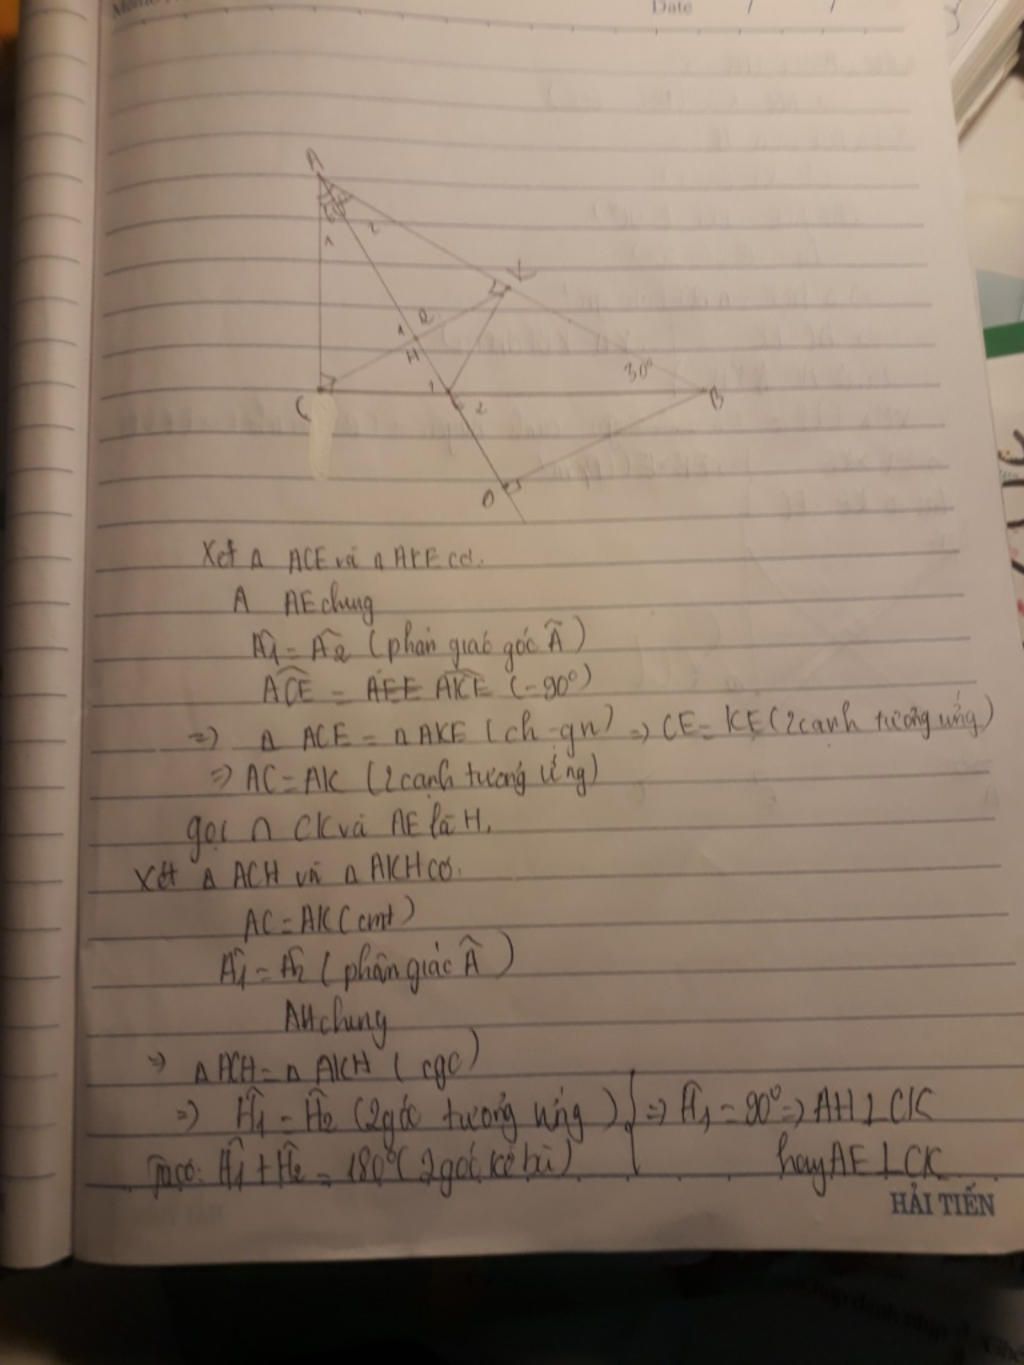 Date / /
A
1
2
K
1
2
H
30°
C
1
2
B
D
Xét Δ ACE và Δ AKE có.
A AE chung
Â1 = Â2 (phân giác góc Â)
ACE = AEE AKE (=90°)
=> Δ ACE = Δ AKE (ch-gn) => CE = KE (2 cạnh tương ứng)
=> AC = AK (2 cạnh tương ứng)
gọi ∩ CK và AE là H.
Xét Δ ACH và Δ AKH có.
AC = AK (cmt)
Â1 = Â2 (phân giác Â)
AH chung
=> Δ ACH = Δ AKH (cgc)
=> Ĥ1 = Ĥ2 (2 góc tương ứng) => Ĥ1 = 90° => AH ⊥ CK
Ta có: Ĥ1 + Ĥ2 = 180° (2 góc kề bù) hay AE ⊥ CK
HẢI TIẾN